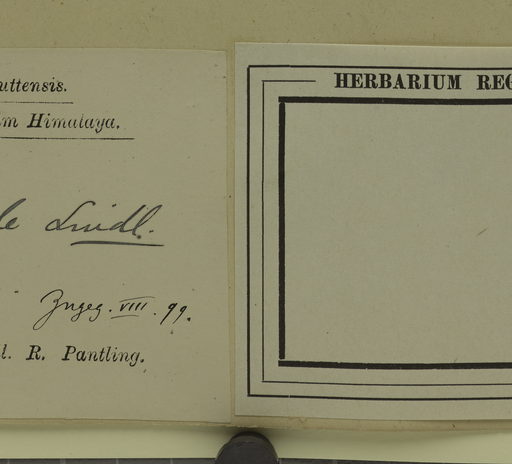 uttensis.
im Himalaya.
le Lindl.
Zugeg. VIII. 99.
l. R. Pantling.
HERBARIUM REG